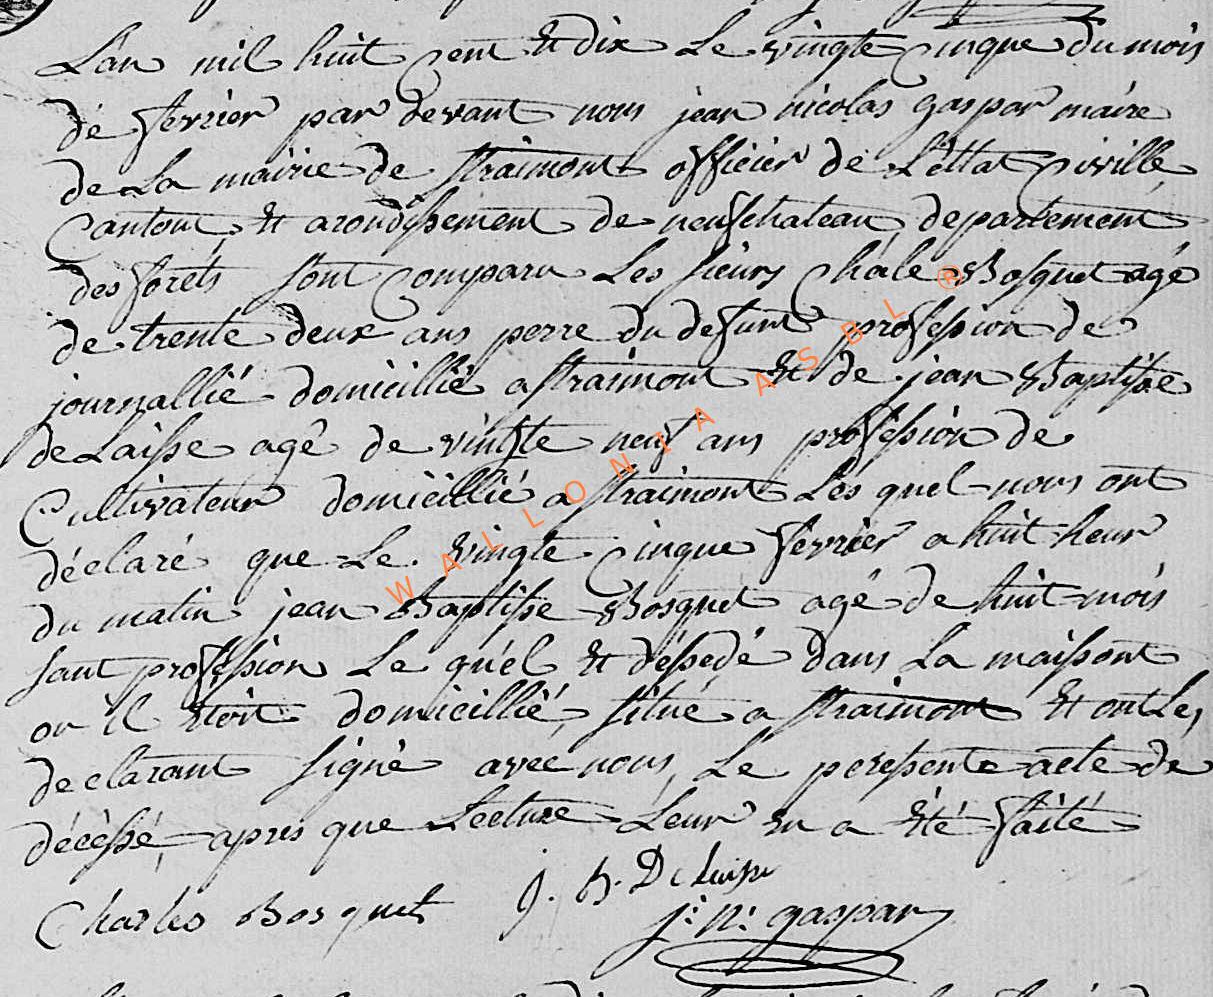 L'an mil huit cent et dix le vingte cinque du mois
dé fevrier par devant nous jean nicolas gaspar maire
de la mairie de straimont officier de l'éttat civille
Cantont et arondissement de neufchateau departement
des foréts sont comparu les sieurs Chàle Bosquet agé
de trente deux ans perre du defunt profession de
journallié domicillié a straimont et de jean Baptiste
de Laisse agé de vingte neuf ans profession de
Cultivateur domicillié a straimont Lés quel nous ont
déclaré que Le vingte cinque fevrier a huit heur
du matin jean Baptiste Bosquet agé de huit mois
sant profession Le quél et déssedé dans la maissont
ou il étoit domicillié situé a straimont et ont Les
declarant signé avec nous Le peressente acte de
décèssé apres que Lecture Leur en a été faité
Charles Bosquet J. B. De Laisse
j: N: gaspar
WALLONIA ASBL ®